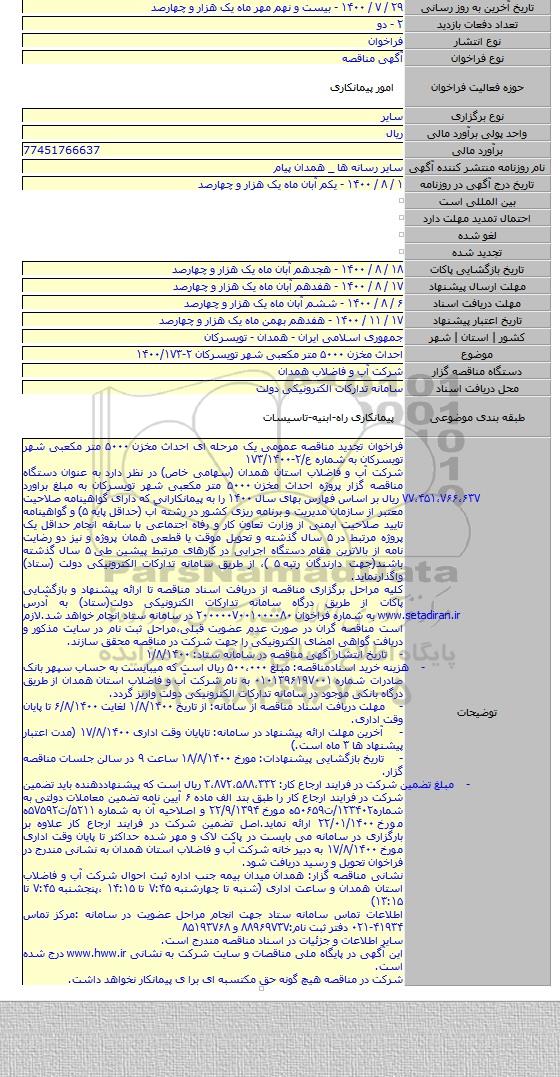 تاریخ آخرین به روز رسانی ۲۹ / ۷ / ۱۴۰۰ - بیست و نهم مهر ماه یک هزار و چهارصد
تعداد دفعات بازدید ۲ - دو
نوع انتشار فراخوان
نوع فراخوان آگهی مناقصه
حوزه فعالیت فراخوان امور پیمانکاری
نوع برگزاری سایر
واحد پولی برآورد مالی ریال
برآورد مالی 77451766637
نام روزنامه منتشر کننده آگهی سایر رسانه ها _ همدان پیام
تاریخ درج آگهی در روزنامه ۱ / ۸ / ۱۴۰۰ - یکم آبان ماه یک هزار و چهارصد
بین المللی است
احتمال تمدید مهلت دارد
لغو شده
تجدید شده
تاریخ بازگشایی پاکات ۱۸ / ۸ / ۱۴۰۰ - هجدهم آبان ماه یک هزار و چهارصد
مهلت ارسال پیشنهاد ۱۷ / ۸ / ۱۴۰۰ - هفدهم آبان ماه یک هزار و چهارصد
مهلت دریافت اسناد ۶ / ۸ / ۱۴۰۰ - ششم آبان ماه یک هزار و چهارصد
تاریخ اعتبار پیشنهاد ۱۷ / ۱۱ / ۱۴۰۰ - هفدهم بهمن ماه یک هزار و چهارصد
کشور | استان | شهر جمهوری اسلامی ایران - همدان - تویسرکان
موضوع احداث مخزن ۵۰۰۰ متر مکعبی شهر تویسرکان ۲-۱۴۰۰/۱۷۳
دستگاه مناقصه گزار شرکت آب و فاضلاب همدان
محل دریافت اسناد سامانه تدارکات الکترونیکی دولت
طبقه بندی موضوعی پیمانکاری راه-ابنیه-تاسیسات
توضیحات
فراخوان تجدید مناقصه عمومی یک مرحله ای احداث مخزن ۵۰۰۰ متر مکعبی شهر
تویسرکان به شماره ع/۲-۱۷۳/۱۴۰۰
شرکت آب و فاضلاب استان همدان (سهامی خاص) در نظر دارد به عنوان دستگاه
مناقصه گزار پروژه احداث مخزن ۵۰۰۰ متر مکعبی شهر تویسرکان به مبلغ براورد
۷۷،۴۵۱،۷۶۶،۶۳۷ ریال بر اساس فهارس بهای سال ۱۴۰۰ را به پیمانکارانی که دارای گواهینامه صلاحیت
معتبر از سازمان مدیریت و برنامه ریزی کشور در رشته آب (حداقل پایه ۵) و گواهینامه
تایید صلاحیت ایمنی از وزارت تعاون کار و رفاه اجتماعی با سابقه انجام حداقل یک
پروژه مرتبط در ۵ سال گذشته و تحویل موقت یا قطعی همان پروژه و نیز دو رضایت
نامه از بالاترین مقام دستگاه اجرایی در کارهای مرتبط پیشین طی ۵ سال گذشته
باشند(جهت دارندگان رتبه ۵ )، از طریق سامانه تدارکات الکترونیکی دولت (ستاد)
واگذارنماید.
کلیه مراحل برگزاری مناقصه از دریافت اسناد مناقصه تا ارائه پیشنهاد و بازگشایی
پاکات از طریق درگاه سامانه تدارکات الکترونیکی دولت(ستاد) به آدرس
www.setadiran.ir به شماره فراخوان ۲۰۰۰۰۰۷۰۰۱۰۰۰۰۸۰ در سامانه ستاد انجام خواهد شد.لازم
است مناقصه گران در صورت عدم عضویت قبلی،مراحل ثبت نام در سایت مذکور و
دریافت گواهی امضای الکترونیکی را جهت شرکت در مناقصه محقق سازند.
- تاریخ انتشار آگهی مناقصه در سامانه ستاد: ۱/۸/۱۴۰۰
- هزینه خرید اسنادمناقصه: مبلغ ۵۰۰،۰۰۰ ریال است که میبایست به حساب سپهر بانک
صادرات شماره ۰۱۰۱۳۹۶۱۹۷۰۰۱ به نام شرکت آب و فاضلاب استان همدان از طریق
درگاه بانکی موجود در سامانه تدارکات الکترونیکی دولت واریز گردد.
- مهلت دریافت اسناد مناقصه از سامانه: از تاریخ ۱/۸/۱۴۰۰ لغایت ۶/۸/۱۴۰۰ تا پایان
وقت اداری.
- آخرین مهلت ارائه پیشنهاد در سامانه: تاپایان وقت اداری ۱۷/۸/۱۴۰۰ (مدت اعتبار
پیشنهاد ها ۳ ماه است.)
- تاریخ بازگشایی پیشنهادات: مورخ ۱۸/۸/۱۴۰۰ ساعت ۹ در سالن جلسات مناقصه
گزار.
- مبلغ تضمین شرکت در فرایند ارجاع کار: ۳،۸۷۲،۵۸۸،۳۳۲ ریال است که پیشنهاددهنده باید تضمین
شرکت در فرایند ارجاع کار را طبق بند الف ماده ۶ آیین نامه تضمین معاملات دولتی به
شماره۱۲۳۴۰۲/ت۵۰۶۵۹ه مورخ ۲۲/۹/۱۳۹۴ و اصلاحیه آن به شماره ۵۲۱۱/ت۵۷۵۹۲ه
مورخ ۲۲/۰۱/۱۴۰۰ ارائه نماید.اصل تضمین شرکت در فرایند ارجاع کار علاوه بر
بارگزاری در سامانه می بایست در پاکت لاک و مهر شده حداکثر تا پایان وقت اداری
مورخ ۱۷/۸/۱۴۰۰ به دبیر خانه شرکت آب و فاضلاب استان همدان به نشانی مندرج در
فراخوان تحویل و رسید دریافت شود.
نشانی مناقصه گزار: همدان میدان بیمه جنب اداره ثبت احوال شرکت آب و فاضلاب
استان همدان و ساعت اداری (شنبه تا چهارشنبه ۷:۴۵ تا ۱۴:۱۵ ،پنجشنبه ۷:۴۵ تا
۱۳:۱۵)
اطلاعات تماس سامانه ستاد جهت انجام مراحل عضویت در سامانه :مرکز تماس
۰۲۱-۴۱۹۳۴ دفتر ثبت نام:۸۸۹۶۹۷۳۷ و ۸۵۱۹۳۷۶۸
سایر اطلاعات و جزئیات در اسناد مناقصه مندرج است.
این آگهی در پایگاه ملی مناقصات و سایت شرکت به نشانی www.hww.ir درج شده
است.
شرکت در مناقصه هیچ گونه حق مکتسبه ای برا ی پیمانکار نخواهد داشت.
ParsNamadData